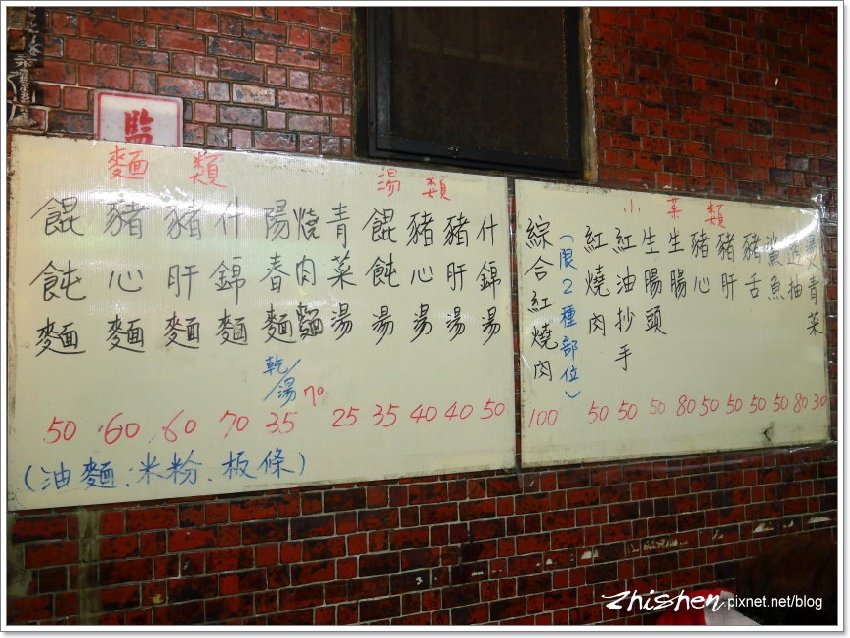 監
麵類
餛飩麵 50
豬心麵 60
豬肝麵 60
什錦麵 70
陽春麵 乾/湯 35
燒肉麵 70
(油麵.米粉.板條)
湯類
青菜湯 25
餛飩湯 35
豬心湯 40
豬肝湯 40
什錦湯 50
小菜類
綜合紅燒肉 100
(限2種部位)
紅燒肉 50
紅油抄手 50
生腸頭 50
生腸 80
豬心 50
豬肝 50
豬舌 50
魚 50
80
青菜 30
zhishen.pixnet.net/blog